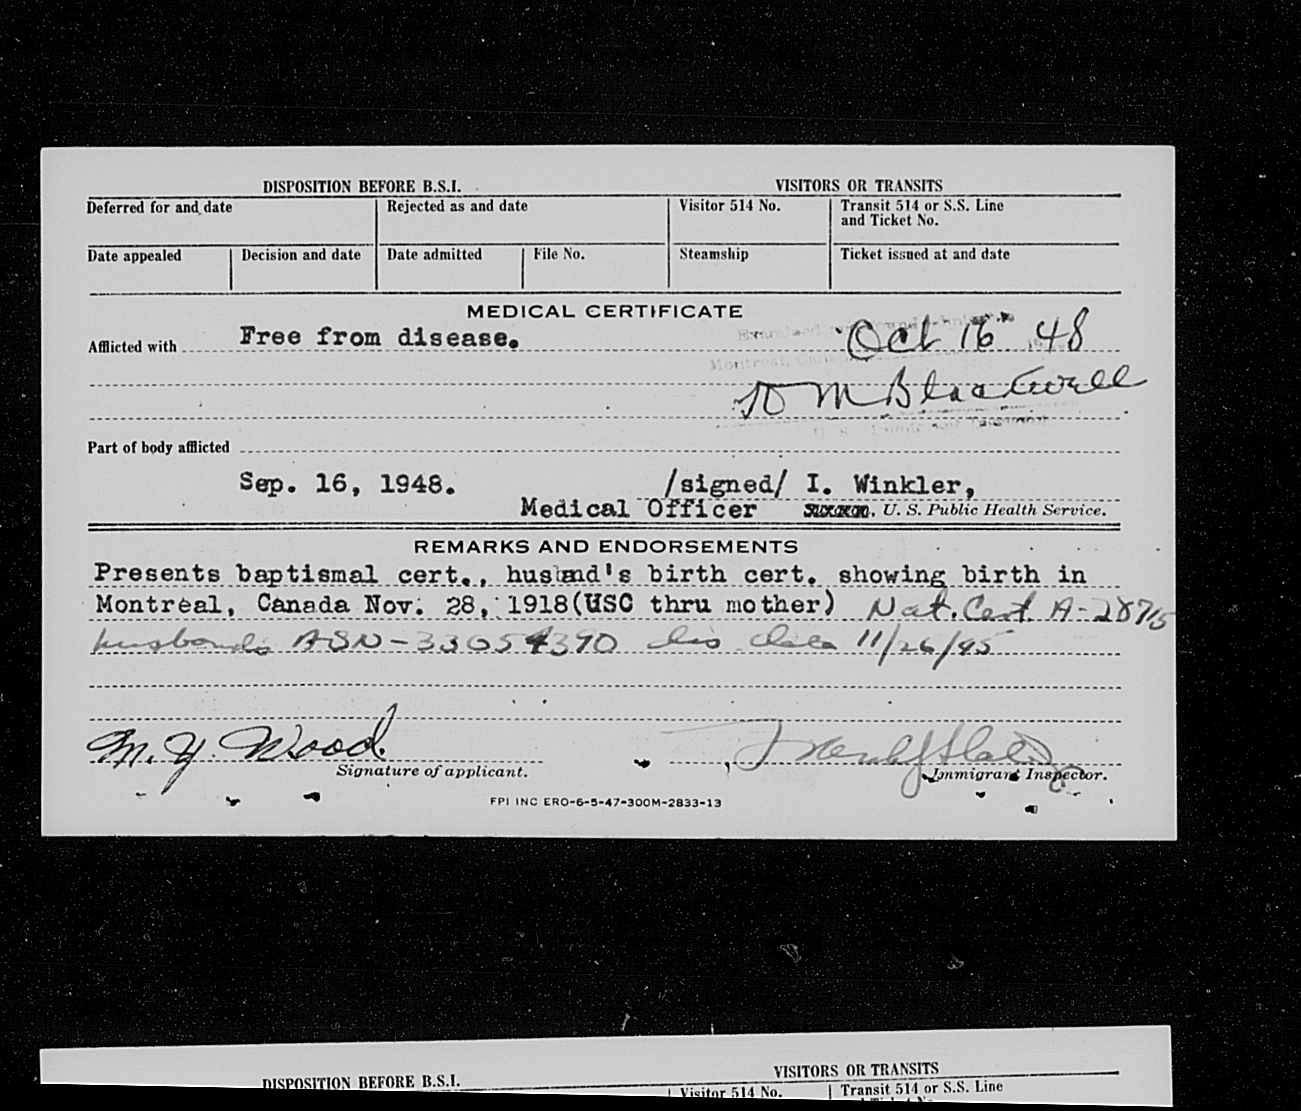 DISPOSITION BEFORE B.S.I. VISITORS OR TRANSITS
Deferred for and date Rejected as and date Visitor 514 No. Transit 514 or S.S. Line
and Ticket No.
Date appealed Decision and date Date admitted File No. Steamship Ticket issued at and date
MEDICAL CERTIFICATE
Afflicted with Free from disease. Oct 16 48
M Blackwell
Part of body afflicted
Sep. 16, 1948. /signed/ I. Winkler,
Medical Officer U. S. Public Health Service.
REMARKS AND ENDORSEMENTS
Presents baptismal cert., husband's birth cert. showing birth in
Montreal, Canada Nov. 28, 1918(USC thru mother) Nat. Cert. A-28715
husbands ASN-33054390 dis 11/26/45
M. Y. Wood.
Signature of applicant. Immigrant Inspector.
FPI INC ERO-6-5-47-300M-2833-13
DISPOSITION BEFORE B.S.I. VISITORS OR TRANSITS
Visitor 514 No. Transit 514 or S.S. Line